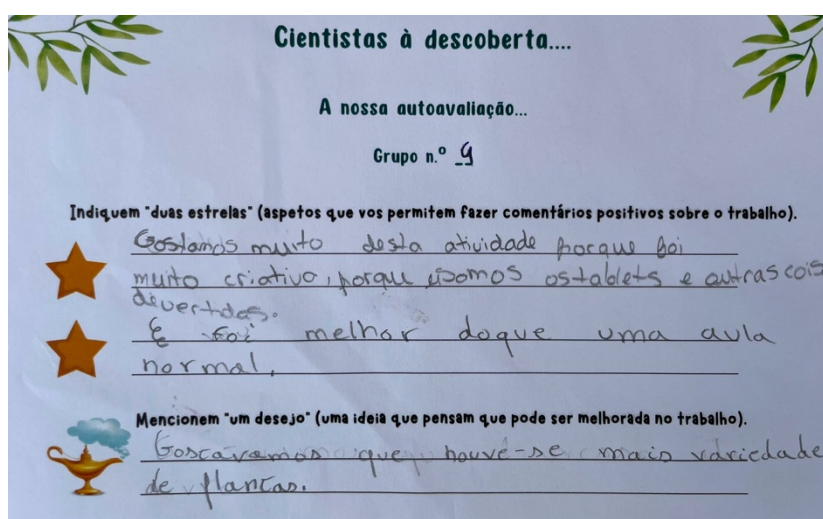 Cientistas à descoberta....
A nossa autoavaliação...
Grupo n.º 9
Indiquem "duas estrelas" (aspetos que vos permitem fazer comentários positivos sobre o trabalho).
Gostamos muito desta atividade porque foi
muito criativo, porque usomos os tablets e outras cois
divertidas.
E foi melhor doque uma aula
normal,
Mencionem "um desejo" (uma ideia que pensam que pode ser melhorada no trabalho).
Gostavamos que houve-se mais variedade
de plantas.